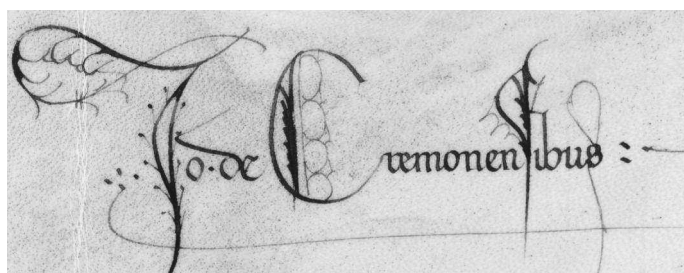 Io· de Cremonensibus :